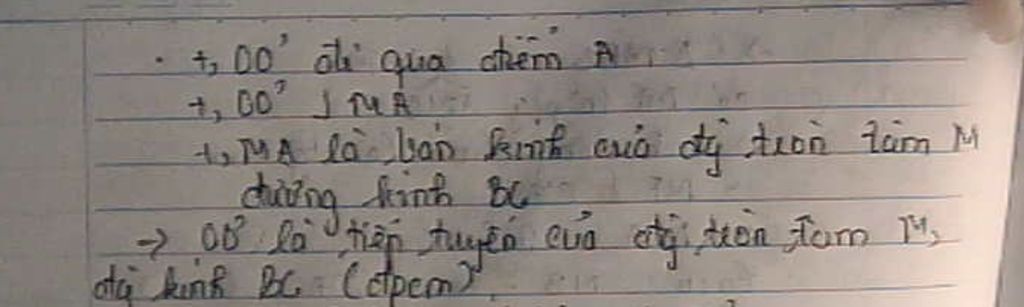 +, OO' đi qua điểm A
+, OO' ⊥ MA
+, MA là bán kính của đg tròn tâm M
đường kính BC
→ OO' là tiếp tuyến của đg tròn tâm M,
đg kính BC (đpcm)